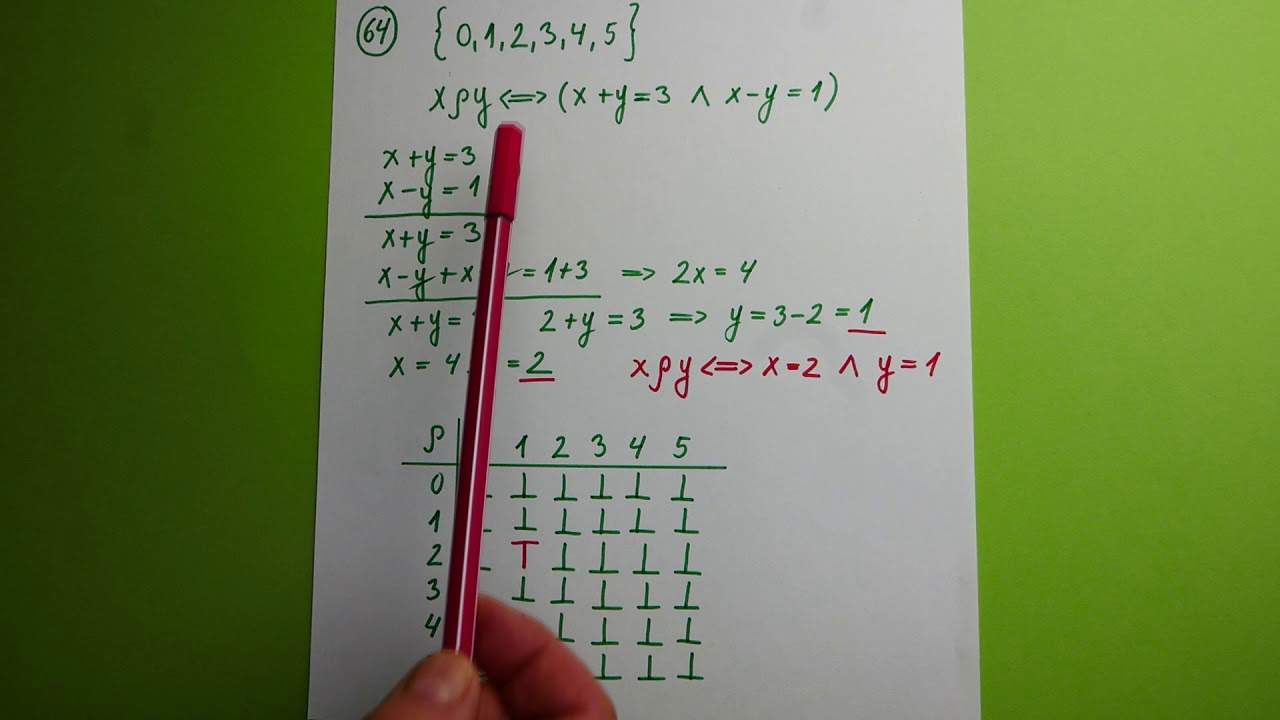 64 {0,1,2,3,4,5}
xρy <=> (x+y=3 ∧ x-y=1)
x+y=3
x-y=1
x+y=3
x-y+x =1+3 => 2x=4
x+y= 2+y=3 => y=3-2=1
x=4 =2 xρy <=> x=2 ∧ y=1
ρ 1 2 3 4 5
0 ⊥ ⊥ ⊥ ⊥ ⊥
1 ⊥ ⊥ ⊥ ⊥ ⊥
2 T ⊥ ⊥ ⊥ ⊥
3 ⊥ ⊥ ⊥ ⊥ ⊥
4 ⊥ ⊥ ⊥ ⊥
⊥ ⊥ ⊥